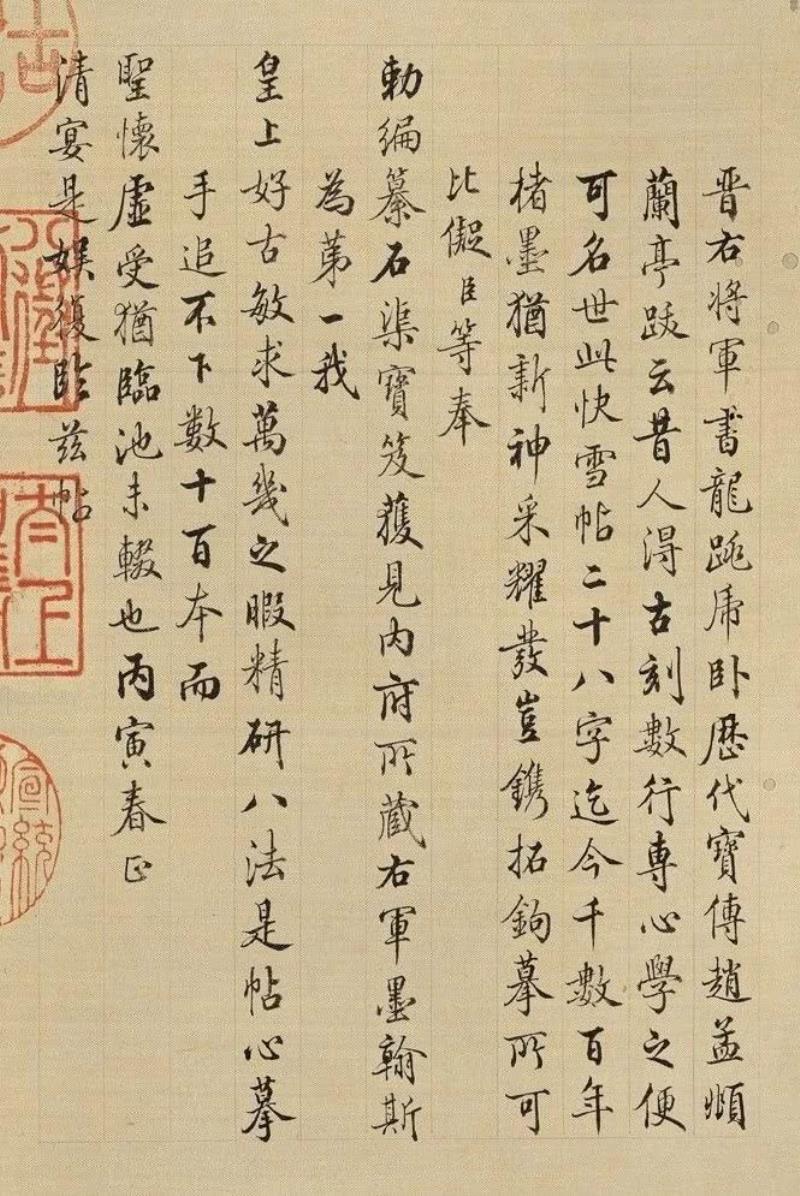 晋右將軍書龍跳虎卧歷代寶傳趙孟頫
蘭亭跋云昔人得古刻數行專心學之便
可名世此快雪帖二十八字迄今千數百年
楮墨猶新神采耀發豈鐫拓鉤摹所可
比儗臣等奉
勅編纂石渠寶笈獲見內府所藏右軍墨翰斯
為第一我
皇上好古敏求萬幾之暇精研八法是帖心摹
手追不下數十百本而
聖懷虛受猶臨池未輟也丙寅春正
清宴是娛復臨茲帖
宣統